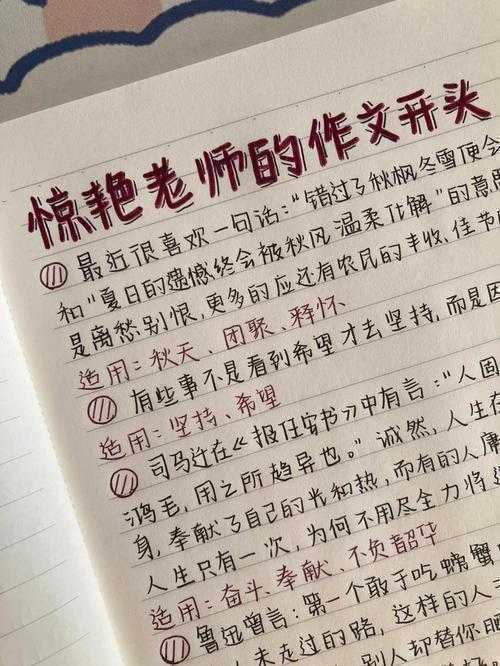 惊艳老师的作文开头
最近很喜欢一句话:"错过了秋枫冬雪便会
和"夏日的遗憾终会被秋风温柔化解"的意
是离愁别恨,更多的应还有农民的丰收、佳节
适用:秋天、团聚、释怀
有些事不是看到希望才去坚持,而是因
适用:坚持、希望
司马迁在《报任安书》中有言:"人固
鸿毛,用之所趋异也。"诚然,人生在
身,奉献了自己的光和热,而有的人庸
人生只有一次,为何不用尽全力将
适用:奋斗、奉献、不负韶华
鲁迅曾言:第一个敢于吃螃蟹
人未走过的路,这样的人
别人却替你